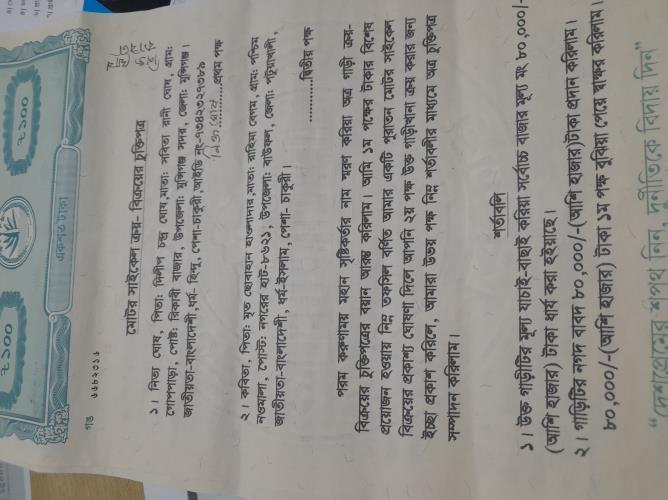 ৳১০০
একশত টাকা
৳১০০
গঙ ৩৬৮২০১৬
মোটর সাইকেল ক্রয়- বিক্রয়ের চুক্তিপত্র
১। নিত্য ঘোষ, পিতা: দিলীপ চন্দ্র ঘোষ,মাতা: সবিতা রানী ঘোষ, গ্রাম:
গোপপাড়া, পোষ্ট: রিকাবী বাজার, উপজেলা: মুন্সিগঞ্জ সদর, জেলা: মুন্সিগঞ্জ।
জাতীয়তা-বাংলাদেশী,ধর্ম- হিন্দু, পেশা-চাকুরী,আইডি নং-৭৩৪২৩২৭৩৮৯
...............প্রথম পক্ষ
২। কবিতা, পিতা: মৃত ছোবাহান হাওলাদার,মাতা: রাহিমা বেগম, গ্রাম: পশ্চিম
নওমালা, পোস্ট: নগরের হাট-৮৬২১, উপজেলা: বাউফল, জেলা: পটুয়াখালী,
জাতীয়তা-বাংলাদেশী, ধর্ম-ইসলাম, পেশা- চাকুরী।
...............দ্বিতীয় পক্ষ
পরম করুণাময় মহান সৃষ্টিকর্তার নাম স্মরণ করিয়া অত্র গাড়ী ক্রয়-
বিক্রয়ের চুক্তিপত্রের বয়ান আরম্ভ করিলাম। আমি ১ম পক্ষের টাকার বিশেষ
প্রয়োজন হওয়ায় নিম্ন তফসিল বর্ণিত আমার একটি পুরাতন মোটর সাইকেল
বিক্রয়ের প্রকাশ্য ঘোষণা দিলে আপনি ২য় পক্ষ উক্ত গাড়ীখানা ক্রয় করার জন্য
ইচ্ছা প্রকাশ করিলে, আমারা উভয় পক্ষ নিম্ন শর্তাবলীর মাধ্যমে অত্র চুক্তিপত্র
সম্পাদন করিলাম।
শর্তাবলি
১। উক্ত গাড়ীটির মূল্য যাচাই-বাছাই করিয়া সর্বোচ্চ বাজার মূল্য মং ৮০,০০০/-
(আশি হাজার) টাকা ধার্য করা হইয়াছে।
২। গাড়ীটির নগদ বাবদ ৮০,০০০/-(আশি হাজার)টাকা প্রদান করিলাম।
৮০,০০০/-(আশি হাজার) টাকা ১ম পক্ষ বুঝিয়া পেয়ে স্বাক্ষর করিলাম।
"দেশপ্রেমের শপথ নিন, দুর্নীতিকে বিদায় দিন"